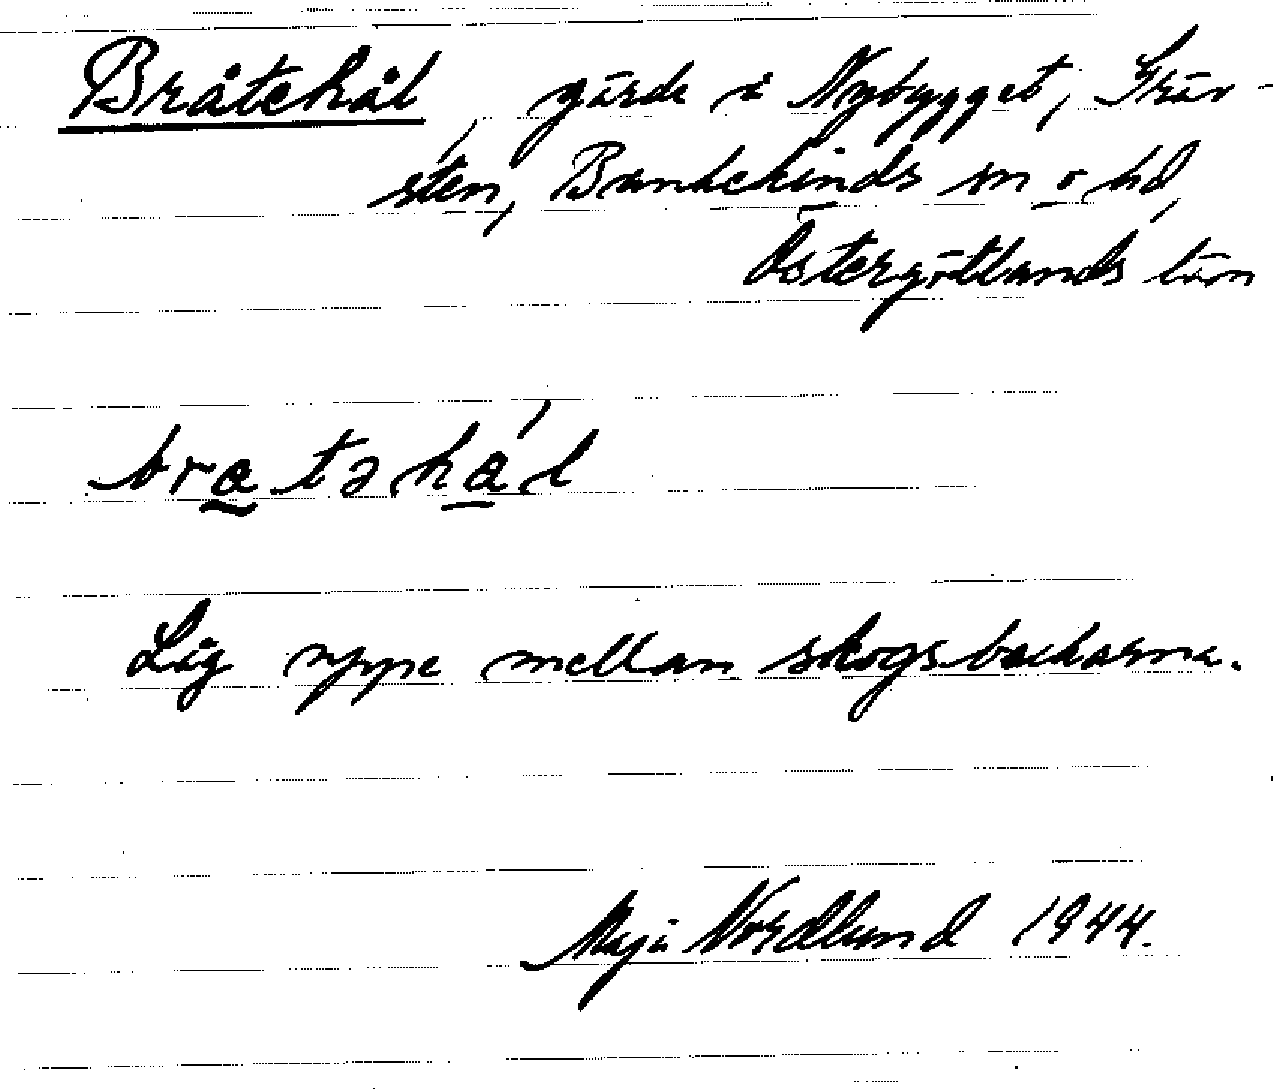 Bråtekål, gärde i Nybygget, Gräv-
sten, Bankekinds sn o hd,
Östergötlands län
bratəkál
Låg uppe mellan skogsbackarna.
Maja Nordlund 1944.